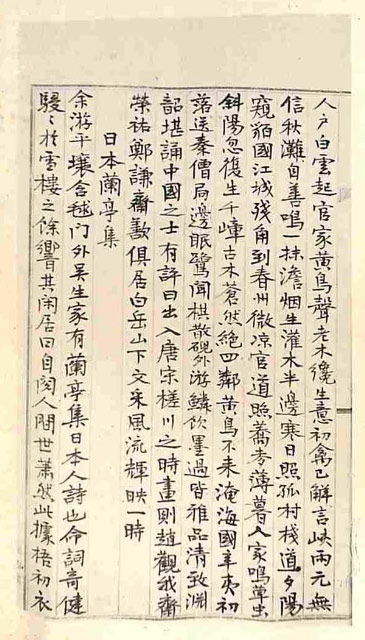 人戶白雲起官家黃鳥聲老木纔生意初禽已解言峽雨元無
信秋灘自善鳴一抹澹烟生灌木半邊寒日照孤村棧道夕陽
窺貊國江城殘角到春州微凉官道照蕎麥薄暮人家鳴草虫
斜陽忽復生千嶂古木蒼然絶四鄰黃鳥不来淹海國辛夷初
落送秦僧局邊眠鷺聞棋散硯外游鱗飲墨過皆雅品清致淵
韶堪誦中國之士有評曰出入唐宋槎川之時畫則趙觀我齋
榮祐鄭謙齋敾俱居白岳山下文采風流輝映一時
日本蘭亭集
余游平壤含毬門外吴生家有蘭亭集日本人詩也命詞奇健
駸〻於雪樓之餘響其閑居曰自閱人間世蕭然此據梧初衣